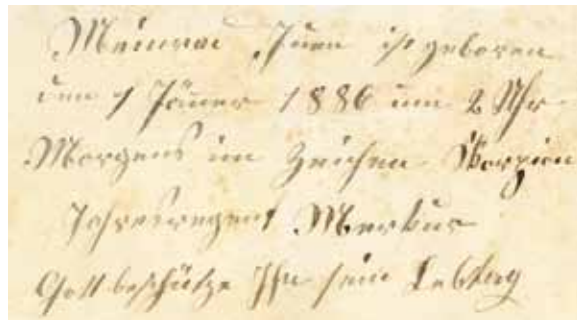 Meinrad Juen ist geboren
den 1 Jäner 1886 um 2 Uhr
Morgens im Zeichen Skorpion
Jahresregent Merkur
Gott beschütze Ihn sein Lebtag